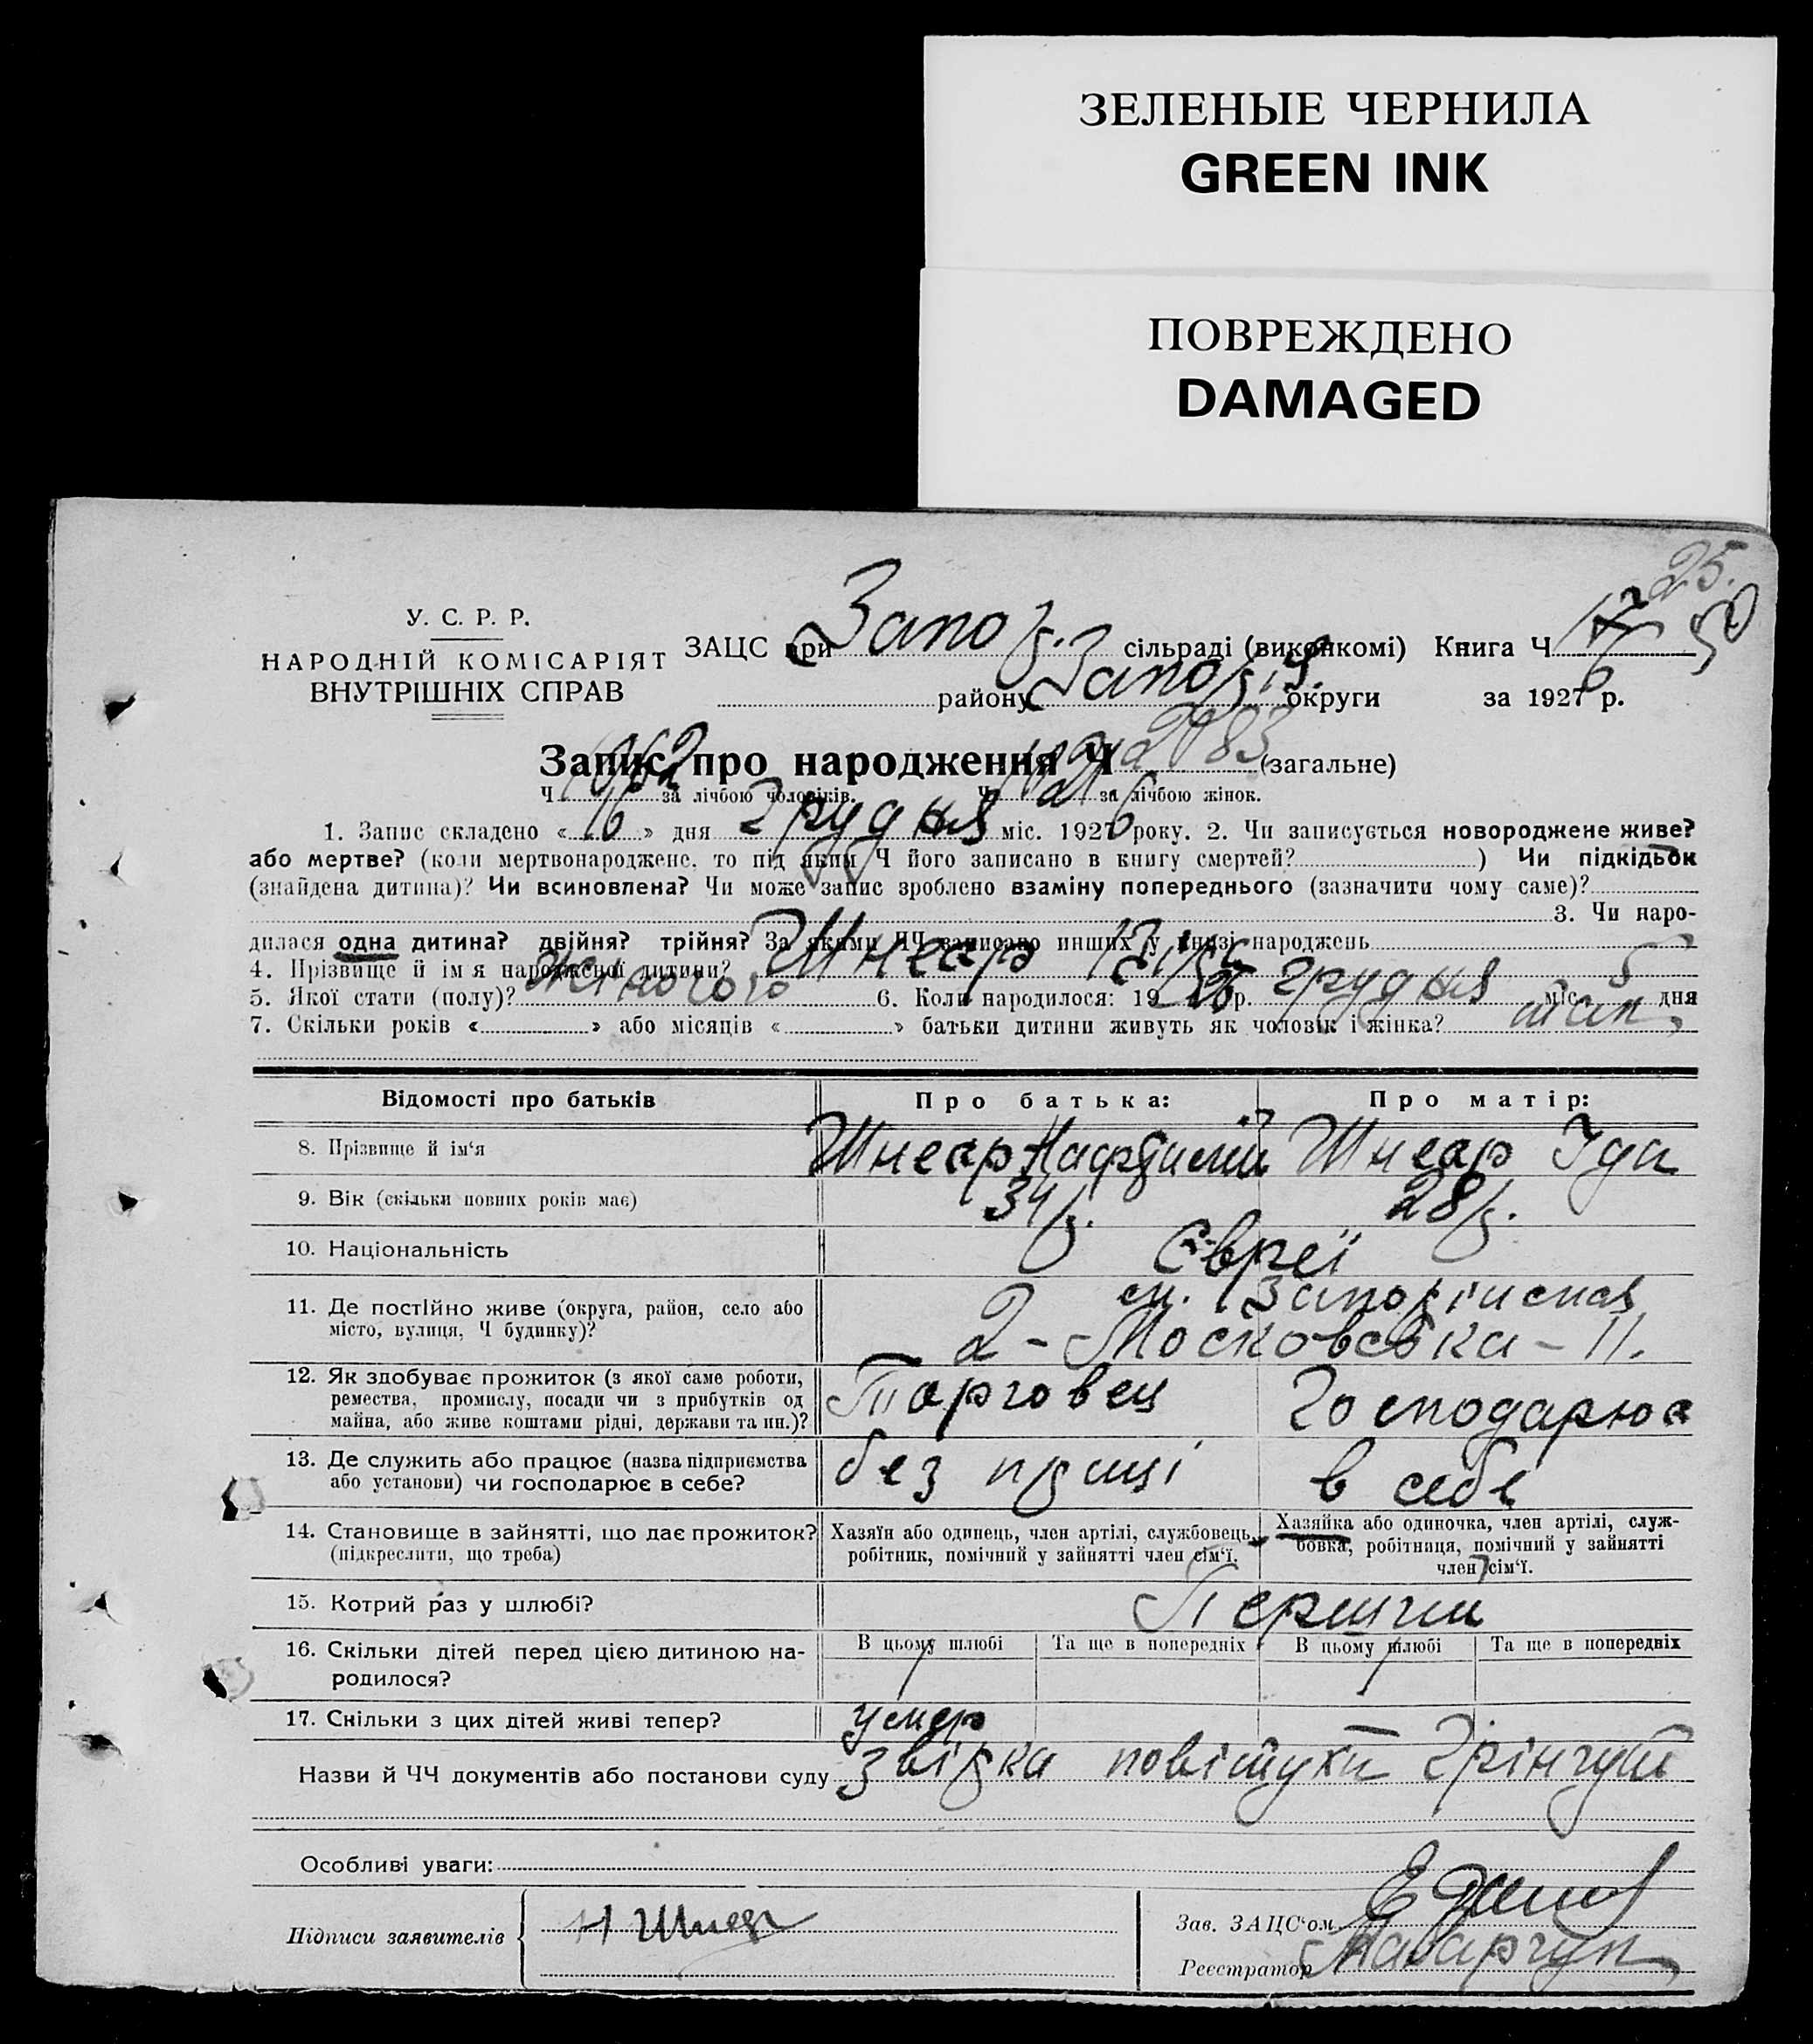 ЗЕЛЕНЫЕ ЧЕРНИЛА
GREEN INK
ПОВРЕЖДЕНО
DAMAGED
25.
50
У. С. Р. Р.
НАРОДНІЙ КОМІСАРІЯТ
ВНУТРІШНІХ СПРАВ
ЗАЦС при Запоз. сільраді (виконкомі) Книга Ч
району округи за 1926 р.
Запис про народження Ч 2083 (загальне)
Ч 1062 за лічбою чоловіків. Ч 1021 за лічбою жінок.
1. Запис складено «16» дня Грудня міс. 1926 року. 2. Чи записується новороджене живе?
або мертве? (коли мертвонароджене, то під яким Ч його записано в книгу смертей? ) Чи підкідьок
(знайдена дитина)? Чи всиновлена? Чи може запис зроблено взаміну попереднього (зазначити чому саме)?
3. Чи наро-
дилася одна дитина? двійня? трійня? За якими ЧЧ записано инших у книзі народжень
4. Прізвище й ім'я народженої дитини? Шнеар
5. Якої стати (полу)? жіночого 6. Коли народилося: 1926 р. грудня міс. 5 дня
7. Скільки років « » або місяців « » батьки дитини живуть як чоловік і жінка? так
Відомості про батьків Про батька: Про матір:
8. Прізвище й ім'я Шнеар Нафталій Шнеар Іда
9. Вік (скільки повних років має) 34 р. 28 р.
10. Національність Євреї
11. Де постійно живе (округа, район, село або місто, вулиця, Ч будинку)? см. Запоріжжя
2 - Московська - 11.
12. Як здобуває прожиток (з якої саме роботи,
ремества, промислу, посади чи з прибутків од
майна, або живе коштами рідні, держави та ин.)? Торговец Господарює
13. Де служить або працює (назва підприємства
або установи) чи господарює в себе? без праці в себе
14. Становище в зайнятті, що дає прожиток?
(підкреслити, що треба)
Хазяїн або одинець, член артілі, службовець,
робітник, помічний у зайнятті член сім'ї.
Хазяйка або одиночка, член артілі, служ-
бовка, робітниця, помічний у зайнятті
член сім'ї.
15. Котрий раз у шлюбі? Перший
16. Скільки дітей перед цією дитиною на-
родилося?
В цьому шлюбі Та ще в попередніх В цьому шлюбі Та ще в попередніх
1 1
17. Скільки з цих дітей живі тепер? умер
Назви й ЧЧ документів або постанови суду повітухи Грінчут
Особливі уваги:
Підписи заявителів Н Шнеар
Зав. ЗАЦС'ом
Реєстратор